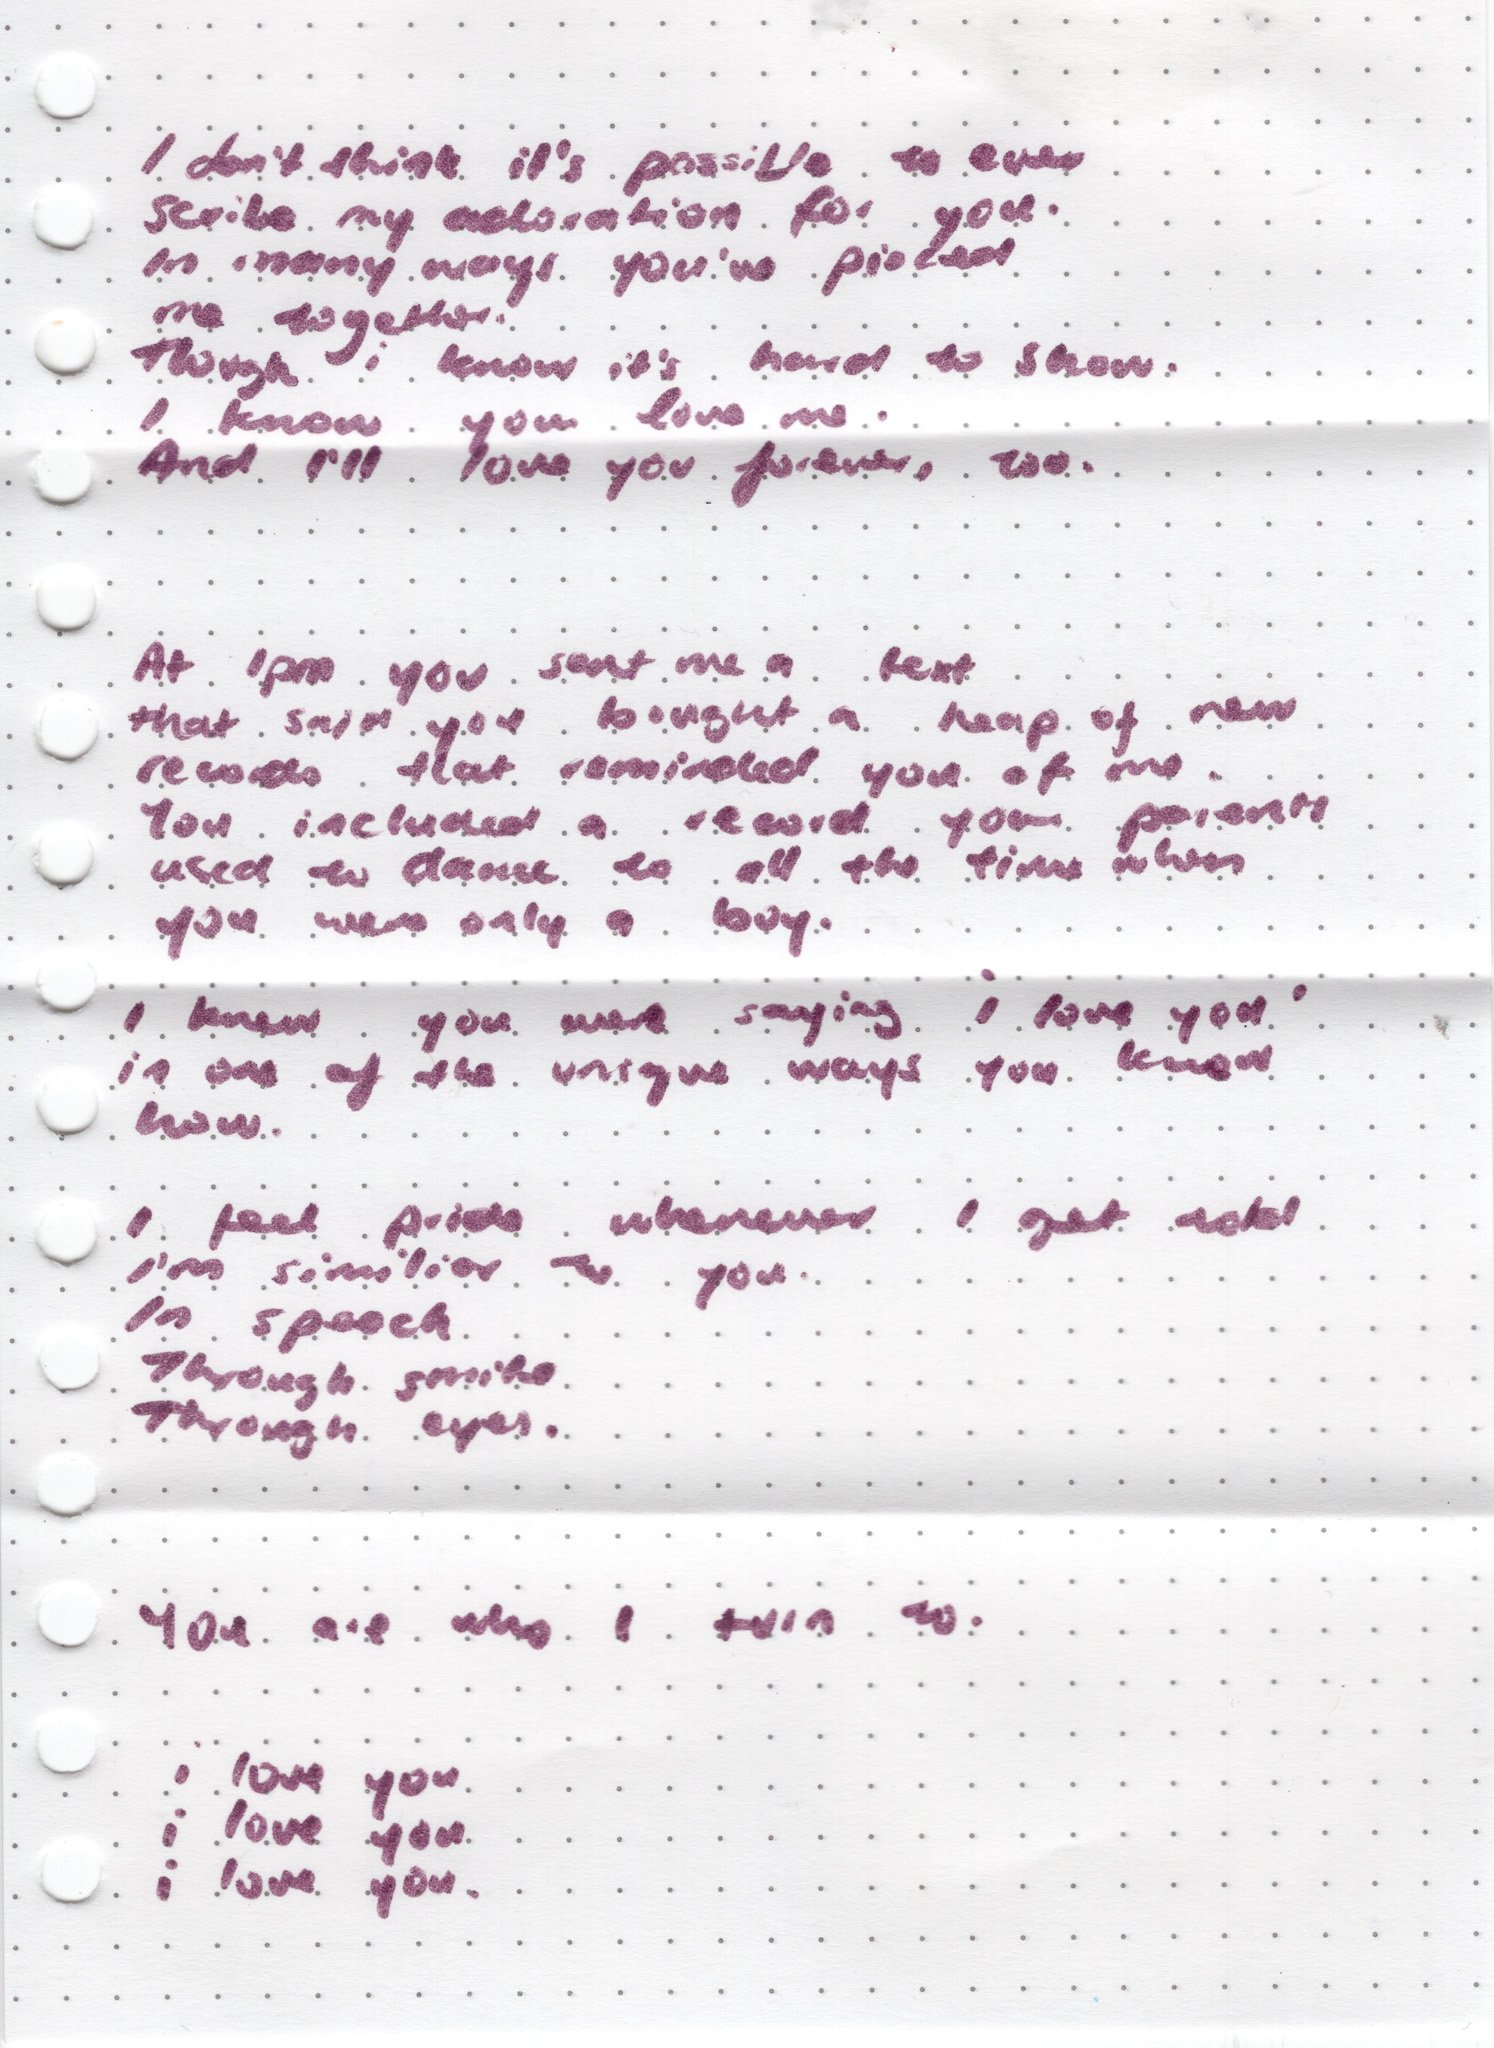 I don't think it's possible to ever
scribe my adoration for you.
In many ways you've pieced
me together.
Though i know it's hard to show.
I know you love me.
And I'll love you forever, too.
At 1pm you sent me a text
that said you bought a heap of new
records that reminded you of me.
You included a record your parents
used to dance to all the time when
you were only a boy.
I knew you were saying 'i love you'
in one of the unique ways you know
how.
I feel pride whenever I get told
I'm similier to you.
In speech
Through smile
Through eyes.
You are who I turn to.
i love you
i love you
i love you.